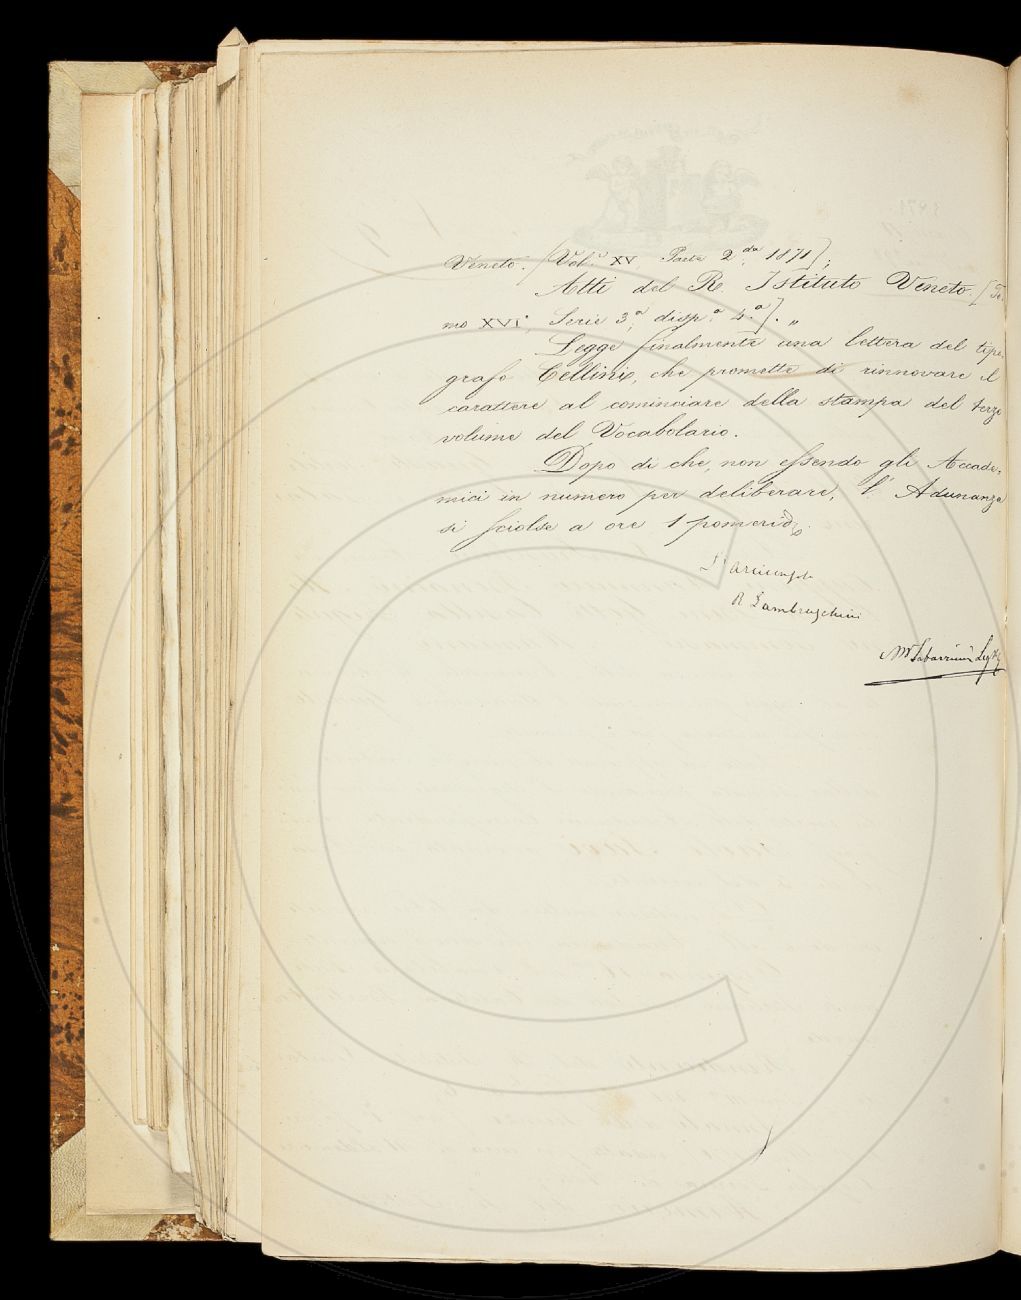 Veneto. [Vol.e XV, Parte 2.da 1871];
Atti del R. Istituto Veneto. [To,
mo XVI°, Serie 3a, disp.a 4.a]. "
Legge finalmente una lettera del tipo,
grafo Cellini, che promette di rinnovare il
carattere al cominciare della stampa del terzo
volume del Vocabolario.
Dopo di che, non essendo gli Accade,
mici in numero per deliberare, l'Adunanza
si sciolse a ore 1 pomerid.
L'Arciconsolo
R Lambruschini
M Tabarrini Seg.